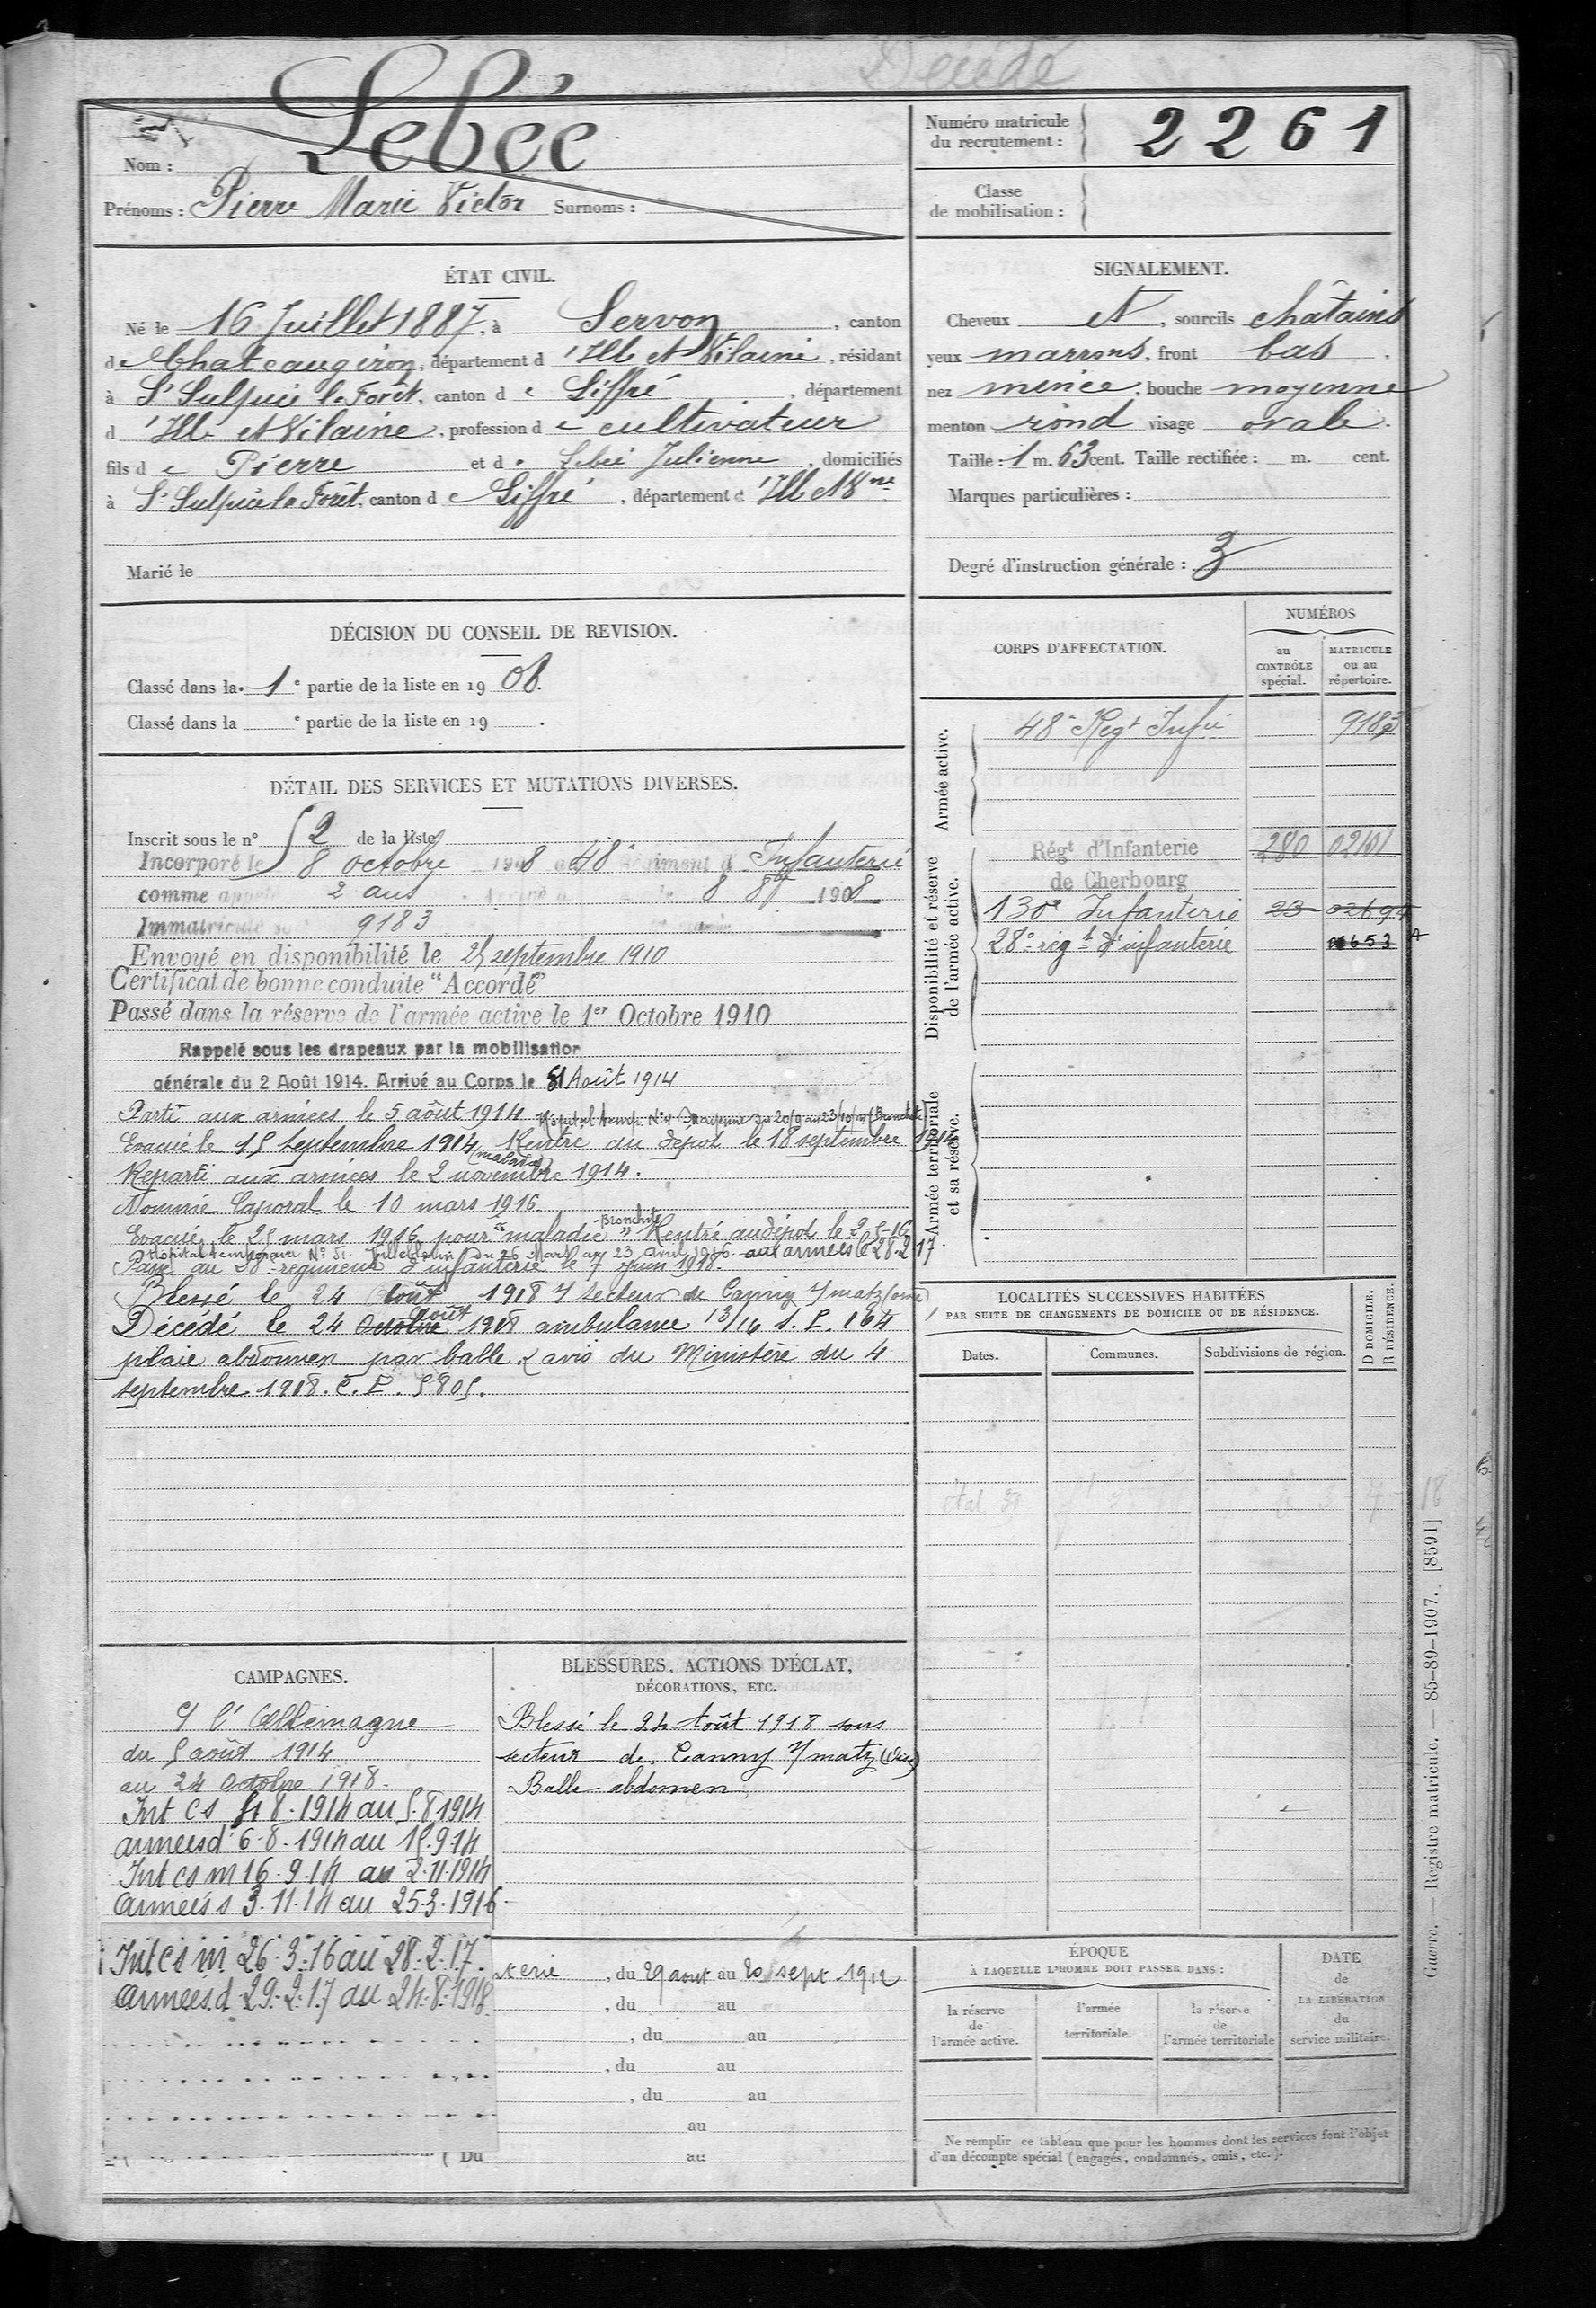 Décédé
Nom : Lebée
Prénoms : Pierre Marie Victor Surnoms :
Numéro matricule
du recrutement : 2261
Classe
de mobilisation :
ÉTAT CIVIL.
Né le 16 Juillet 1887, à Servon, canton
de Chateaugiron, département d'Ille et Vilaine, résidant
à St Sulpice la Forêt, canton de Liffré, département
d'Ille et Vilaine, profession de cultivateur
fils de Pierre et de Lebée Julienne, domiciliés
à St Sulpice la Forêt, canton de Liffré, département d'Ille et Vne
Marié le
SIGNALEMENT.
Cheveux et, sourcils châtains
yeux marrons, front bas,
nez mince, bouche moyenne
menton rond visage ovale.
Taille : 1 m. 63 cent. Taille rectifiée : m. cent.
Marques particulières :
Degré d'instruction générale : 3
DÉCISION DU CONSEIL DE REVISION.
Classé dans la 1e partie de la liste en 1908.
Classé dans la e partie de la liste en 19 .
DÉTAIL DES SERVICES ET MUTATIONS DIVERSES.
Inscrit sous le n° 52 de la liste
Incorporé le 8 octobre 1908 au 48e Régiment d'Infanterie
comme appelé 2 ans Arrivé le 8 8bre 1908
Immatriculé 9183
Envoyé en disponibilité le 25 septembre 1910
Certificat de bonne conduite "Accordé"
Passé dans la réserve de l'armée active le 1er Octobre 1910
Rappelé sous les drapeaux par la mobilisation
générale du 2 Août 1914. Arrivé au Corps le Août 1914
Parti aux armées le 5 août 1914 Hôpital temp. N° Mayenne du 20/9 au 23/10/14 (Bronchite)
Evacué le 15 septembre 1914 (malade) Rentré au dépôt le 18 septembre 1914
Reparti aux armées le 2 novembre 1914.
Nommé Caporal le 10 mars 1916
Evacué le 25 mars 1916 pour "maladie" Bronchite Rentré au dépôt le 2-5-16
Hôpital temporaire N° 51 Juilletbelain du 26 Mars au 23 avril 1916 aux armées le 28.2.17.
Passé au 28e régiment d'infanterie le 7 juin 1918.
Blessé le 24 août 1918 s/ secteur de Canny s/ matz (oise)
Décédé le 24 Octobre août 1918 ambulance 13/16 S. P. 164
plaie abdomen par balle. avis du Ministère du 4
septembre 1918. C. P. 5805.
CORPS D'AFFECTATION.
NUMÉROS
au
CONTRÔLE
spécial.
MATRICULE
ou au
répertoire.
Armée active.
48e Regt Infie 9183
Disponibilité et réserve
de l'armée active.
Régt d'Infanterie 280
de Cherbourg
130e Infanterie 23 02694
28e régt d'infanterie
Armée territoriale
et sa réserve.
LOCALITÉS SUCCESSIVES HABITÉES
PAR SUITE DE CHANGEMENTS DE DOMICILE OU DE RÉSIDENCE.
Dates.
Communes.
Subdivisions de région.
D DOMICILE.
R RÉSIDENCE.
CAMPAGNES.
C/ l'Allemagne
du 5 août 1914
au 24 Octobre 1918.
Int CS 8.1914 au 5.8.1914
armées d 6.8.1914 au 15.9.14
Int cs m 16.9.14 au 2.11.1914
Armées 3.11.14 au 25.3.1916
Int cs m 26.3.16 au 28.2.17.
Armées d 29.2.17 au 24.8.1918
BLESSURES, ACTIONS D'ÉCLAT,
DÉCORATIONS, ETC.
Blessé le 24 Août 1918 sous
secteur de Canny s/ matz (Oise)
Balle abdomen
terie, du 29 aout au 20 sept 1912
, du au
, du au
, du au
, du au
au
Du au
ÉPOQUE
À LAQUELLE L'HOMME DOIT PASSER DANS :
la réserve
de
l'armée active.
l'armée
territoriale.
la réserve
de
l'armée territoriale
DATE
de
LA LIBÉRATION
du
service militaire.
Ne remplir ce tableau que pour les hommes dont les services font l'objet
d'un décompte spécial (engagés, condamnés, omis, etc.).
Guerre. — Registre matricule. — 85-89-1907. [8591]